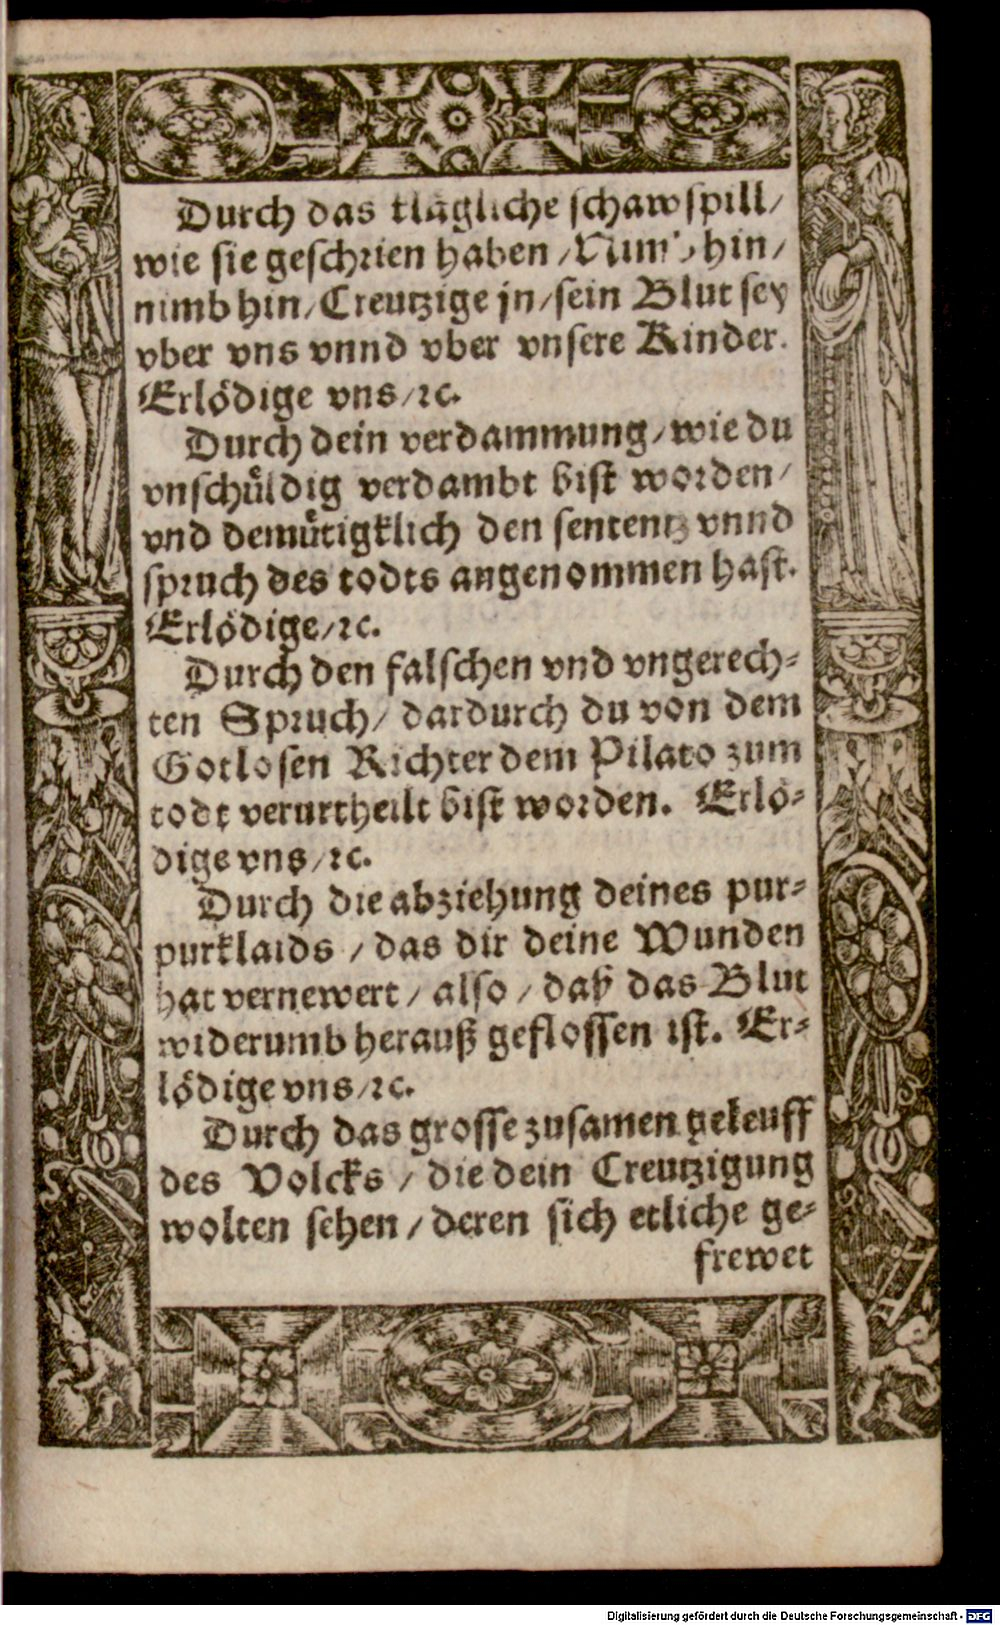 Durch das klägliche schawspill/
wie sie geschrien haben/Nimb hin/
nimb hin/Creutzige jn/sein Blut sey
vber vns vnnd vber vnsere Kinder.
Erlödige vns/ꝛc.
Durch dein verdammung/wie du
vnschůldig verdambt bist worden/
vnd demůtigklich den sententz vnnd
spruch des todts angenommen hast.
Erlödige/ꝛc.
Durch den falschen vnd vngerech-
ten Spruch/ dardurch du von dem
Gotlosen Richter dem Pilato zum
todt verurtheilt bist worden. Erlö-
dige vns/ꝛc.
Durch die abziehung deines pur-
purklaids/das dir deine Wunden
hat vernewert/ also/ daß das Blut
widerumb herauß geflossen ist. Er-
lödige vns/ꝛc.
Durch das grosse zusamen geleuff
des Volcks/ die dein Creutzigung
wolten sehen/ deren sich etliche ge-
frewet
Digitalisierung gefördert durch die Deutsche Forschungsgemeinschaft - DFG